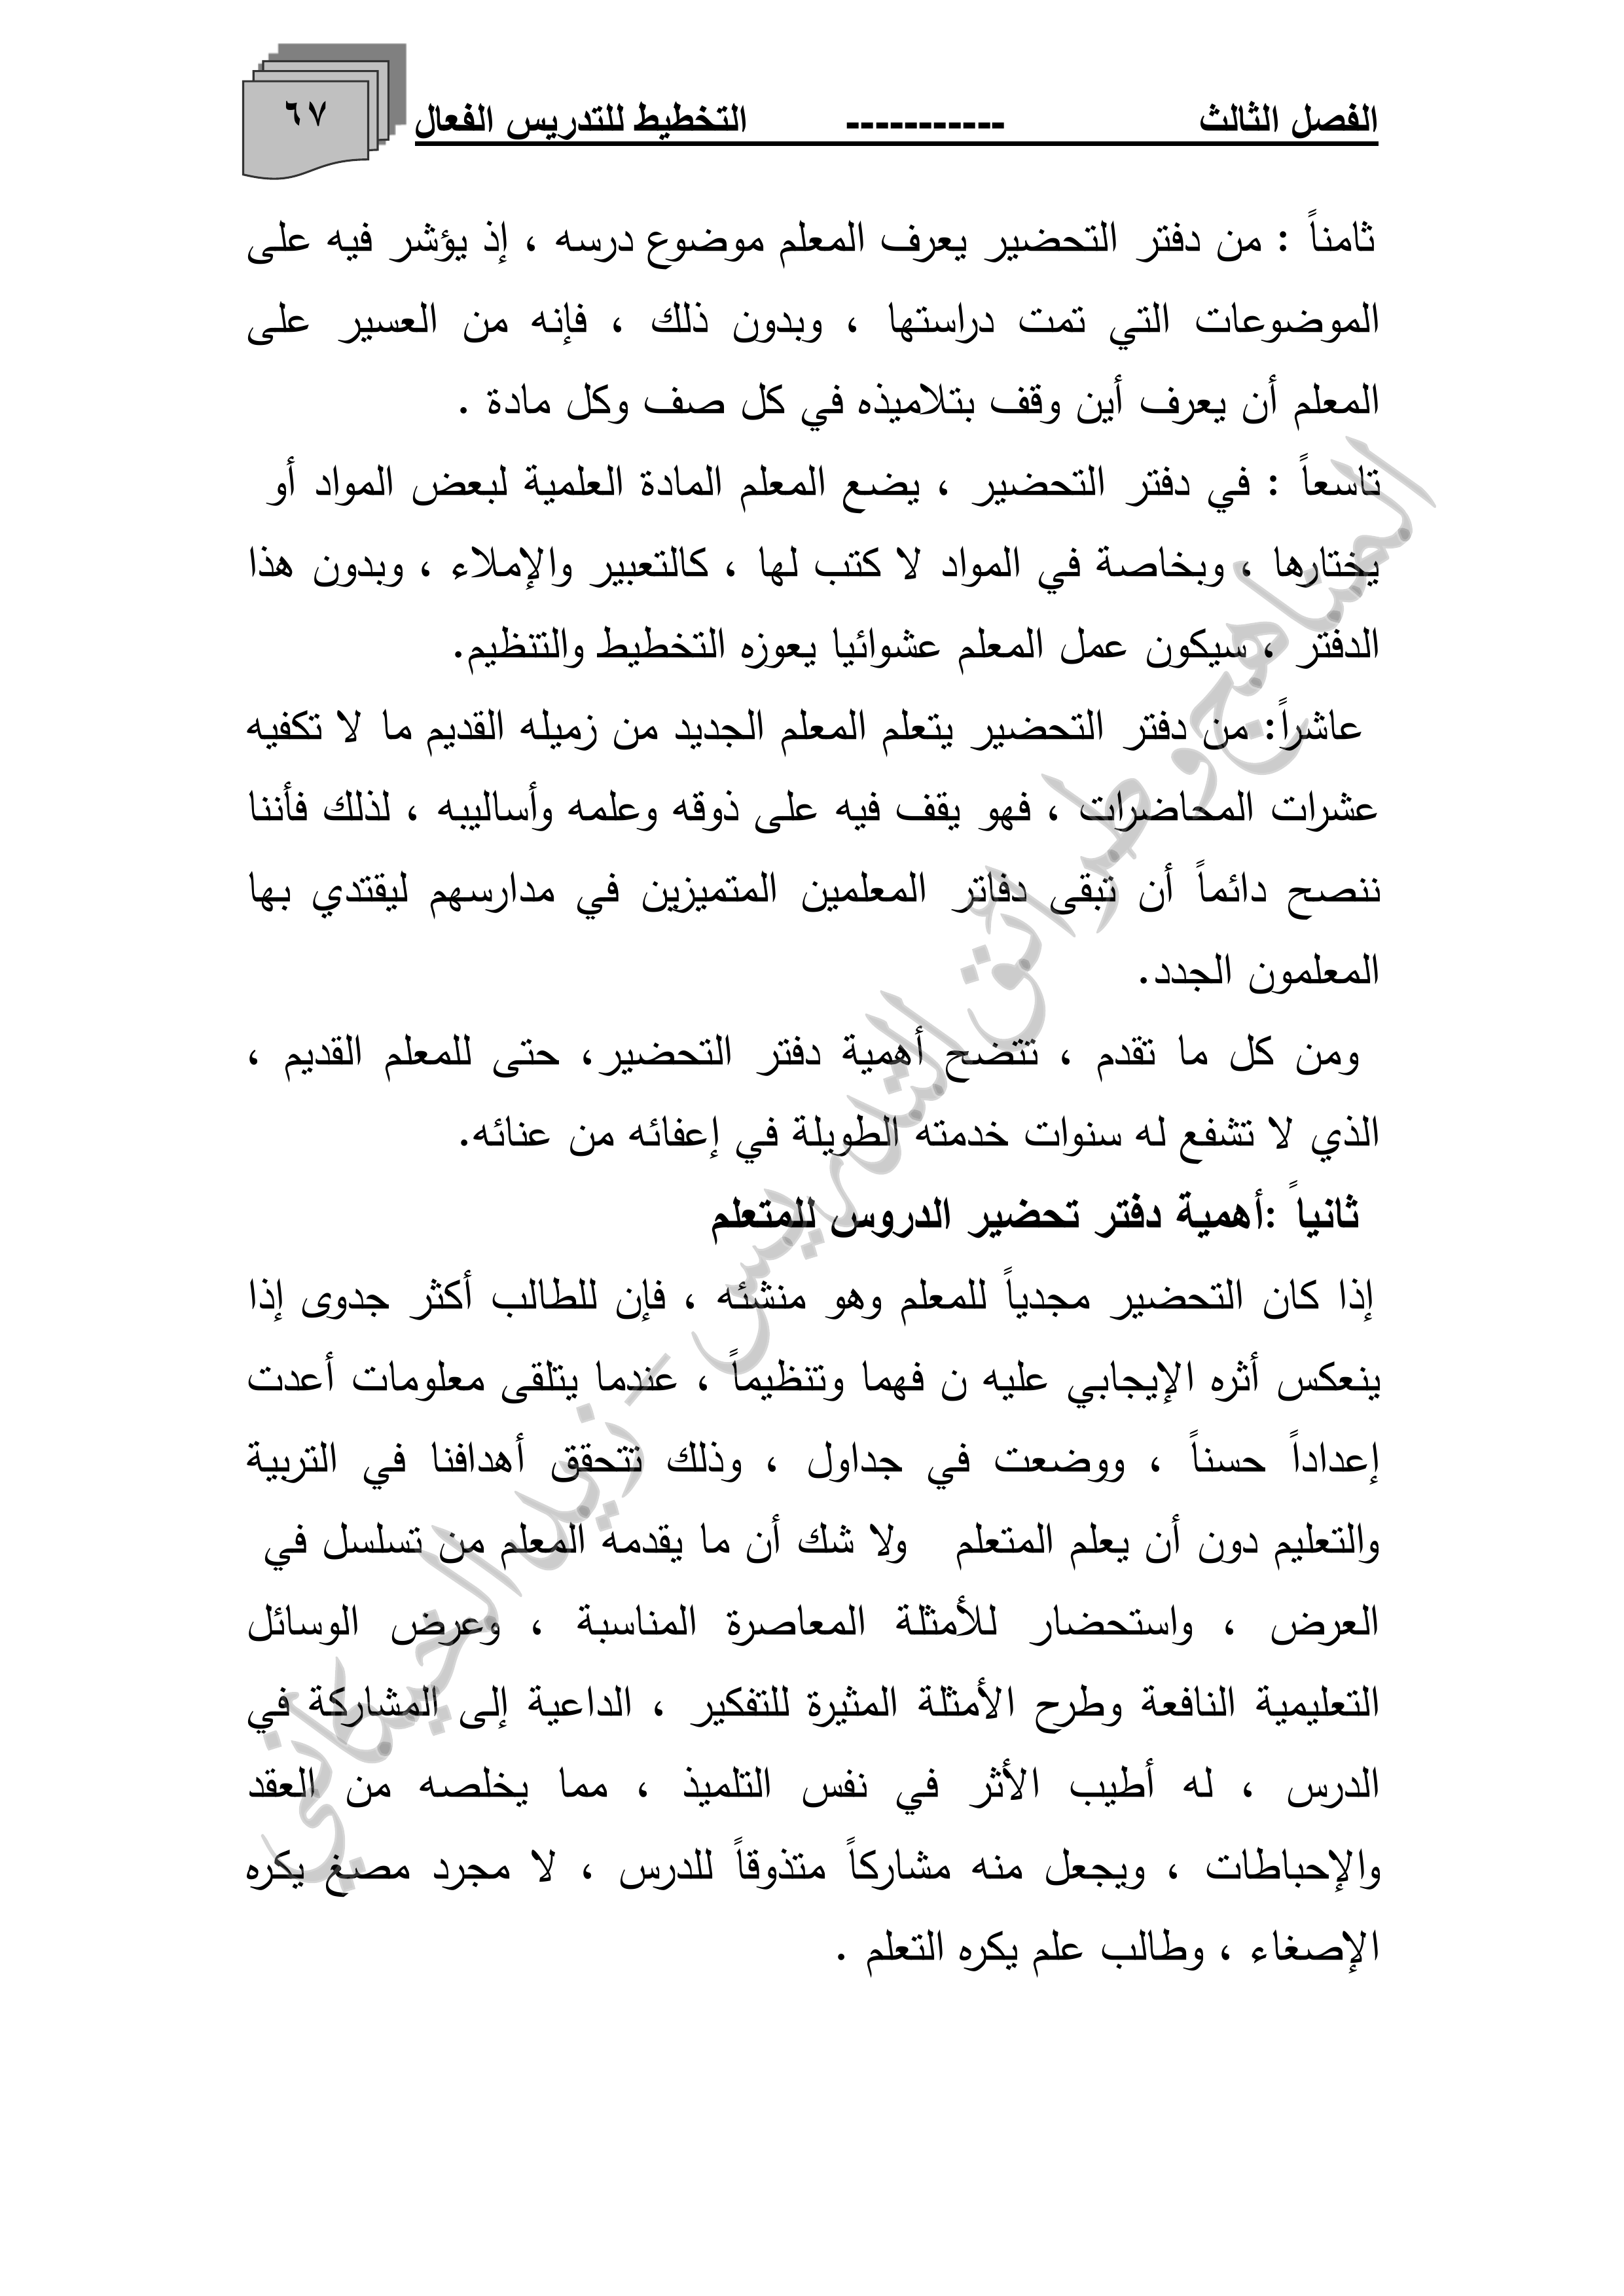 الفصل الثالث ----------- التخطيط للتدريس الفعال
٦٧
ثامناً : من دفتر التحضير يعرف المعلم موضوع درسه ، إذ يؤشر فيه على
الموضوعات التي تمت دراستها ، وبدون ذلك ، فإنه من العسير على
المعلم أن يعرف أين وقف بتلاميذه في كل صف وكل مادة .
تاسعاً : في دفتر التحضير ، يضع المعلم المادة العلمية لبعض المواد أو
يختارها ، وبخاصة في المواد لا كتب لها ، كالتعبير والإملاء ، وبدون هذا
الدفتر ، سيكون عمل المعلم عشوائيا يعوزه التخطيط والتنظيم.
عاشراً: من دفتر التحضير يتعلم المعلم الجديد من زميله القديم ما لا تكفيه
عشرات المحاضرات ، فهو يقف فيه على ذوقه وعلمه وأساليبه ، لذلك فأننا
ننصح دائماً أن تبقى دفاتر المعلمين المتميزين في مدارسهم ليقتدي بها
المعلمون الجدد.
ومن كل ما تقدم ، تتضح أهمية دفتر التحضير، حتى للمعلم القديم ،
الذي لا تشفع له سنوات خدمته الطويلة في إعفائه من عنائه.
ثانياً :أهمية دفتر تحضير الدروس للمتعلم
إذا كان التحضير مجدياً للمعلم وهو منشئه ، فإن للطالب أكثر جدوى إذا
ينعكس أثره الإيجابي عليه ن فهما وتنظيماً ، عندما يتلقى معلومات أعدت
إعداداً حسناً ، ووضعت في جداول ، وذلك تتحقق أهدافنا في التربية
والتعليم دون أن يعلم المتعلم ولا شك أن ما يقدمه المعلم من تسلسل في
العرض ، واستحضار للأمثلة المعاصرة المناسبة ، وعرض الوسائل
التعليمية النافعة وطرح الأمثلة المثيرة للتفكير ، الداعية إلى المشاركة في
الدرس ، له أطيب الأثر في نفس التلميذ ، مما يخلصه من العقد
والإحباطات ، ويجعل منه مشاركاً متذوقاً للدرس ، لا مجرد مصغ يكره
الإصغاء ، وطالب علم يكره التعلم .
المناهج وطرائق التدريس - زيد الخيكاني